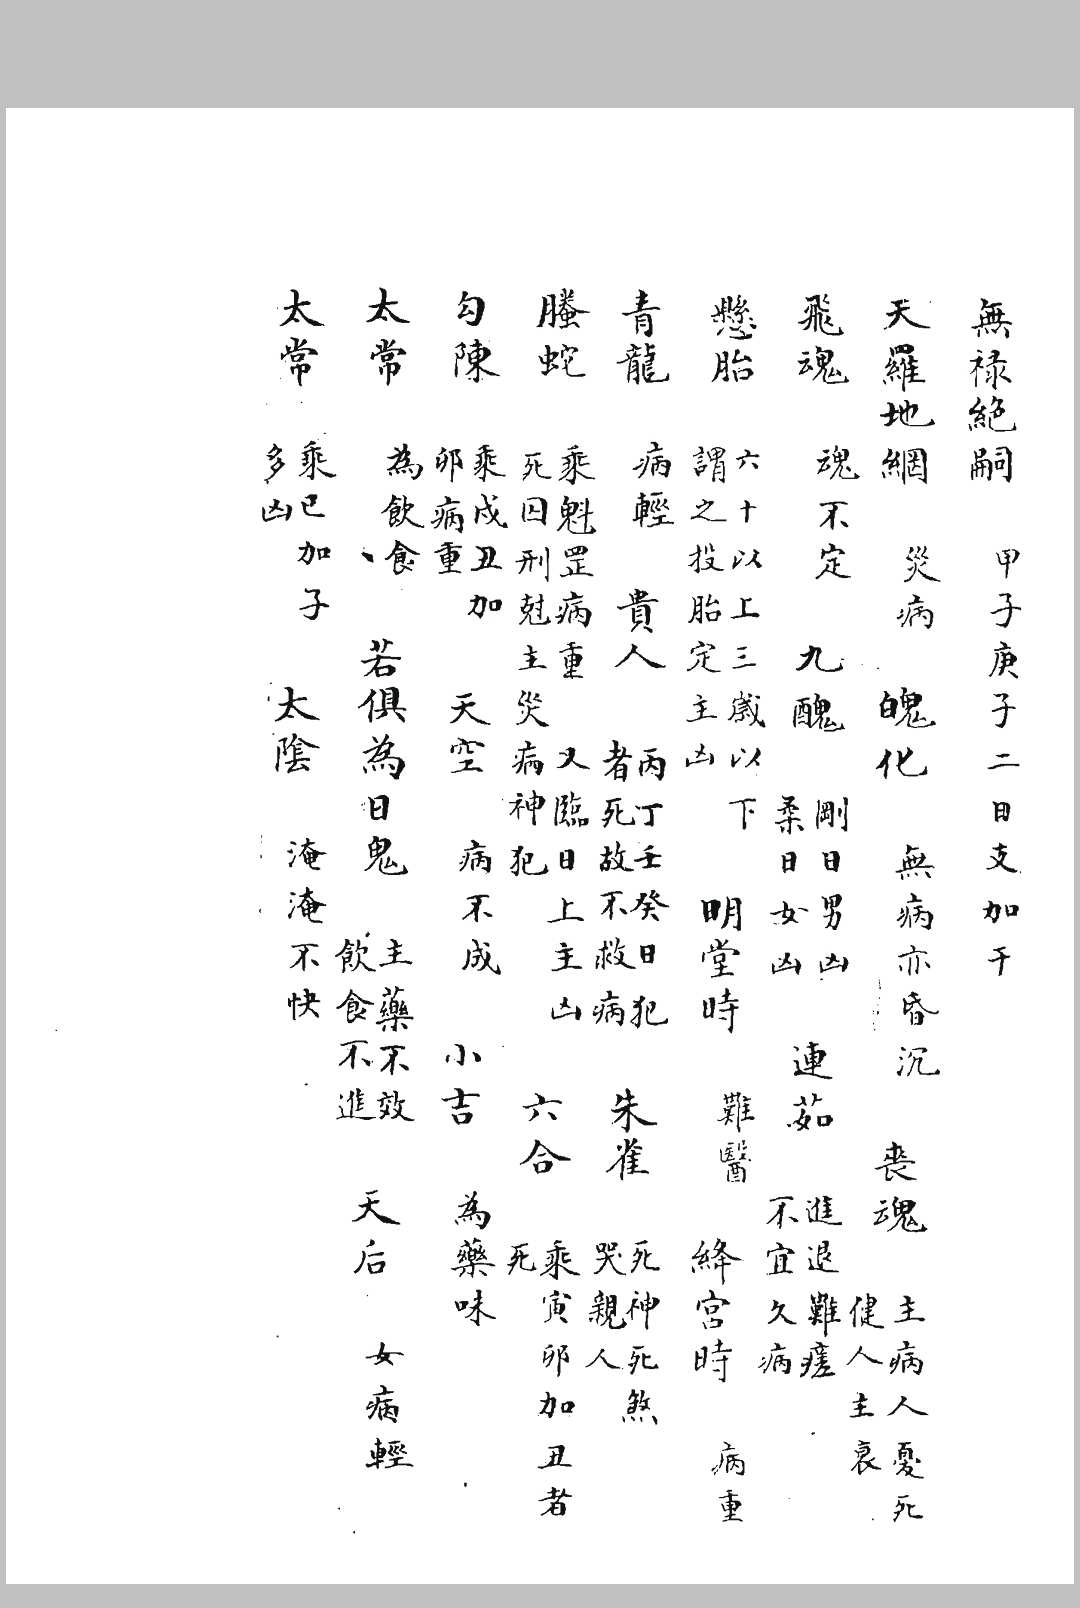 無祿絕嗣　甲子庚子二日支加干
天羅地網　災病　魄化　無病亦昏沉　喪魂　主病人憂死
健人主衰
飛魂　魂不定　九醜　剛日男凶
柔日女凶　連茹　進退難瘥
不宜久病
懸胎　六十以上三歲以下
謂之投胎定主凶　明堂時　難醫　絳宮時　病重
青龍　病輕　貴人　丙丁壬癸日犯
者死故不救病　朱雀　死神死煞
哭親人
螣蛇　乘魁罡病重　又臨日上主凶
死囚刑尅主災病神犯　六合　乘寅卯加丑者
死
勾陳　乘戌丑加
卯病重　天空　病不成　小吉　為藥味
太常　為飲食、　若俱為日鬼　主藥不效
飲食不進　天后　女病輕
太常　乘巳加子
多凶　太陰　淹淹不快